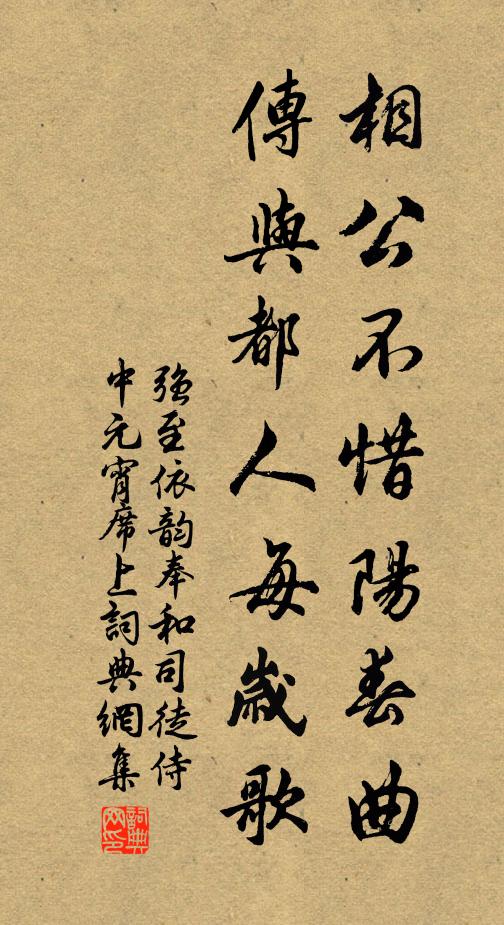 相公不惜陽春曲
傳與都人每歲歌
強至依韵奉和司徒侍
中元宵席上詞典網集
詞典
网印